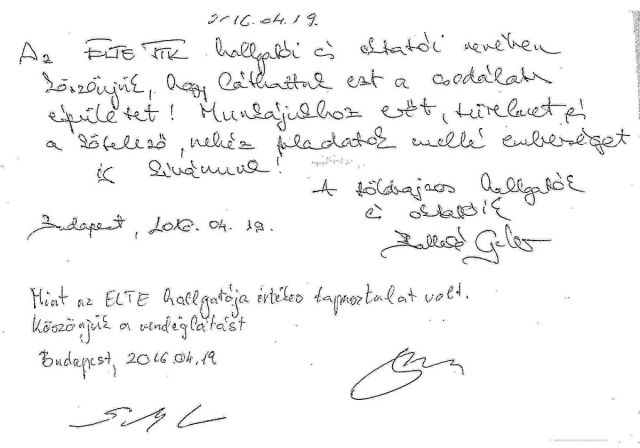 2016.04.19.
Az ELTE TTK hallgatói és oktatói nevében
köszönjük, hogy láthattuk ezt a csodálatos
épületet! Munkájukhoz erőt, türelmet és
a kötelező, nehéz feladatok mellé emberséget
is kívánunk!
A földrajzos hallgatók
és oktatóik
Budapest, 2016. 04. 19.
Mint az ELTE hallgatója értékes tapasztalat volt.
Köszönjük a vendéglátást
Budapest, 2016.04.19